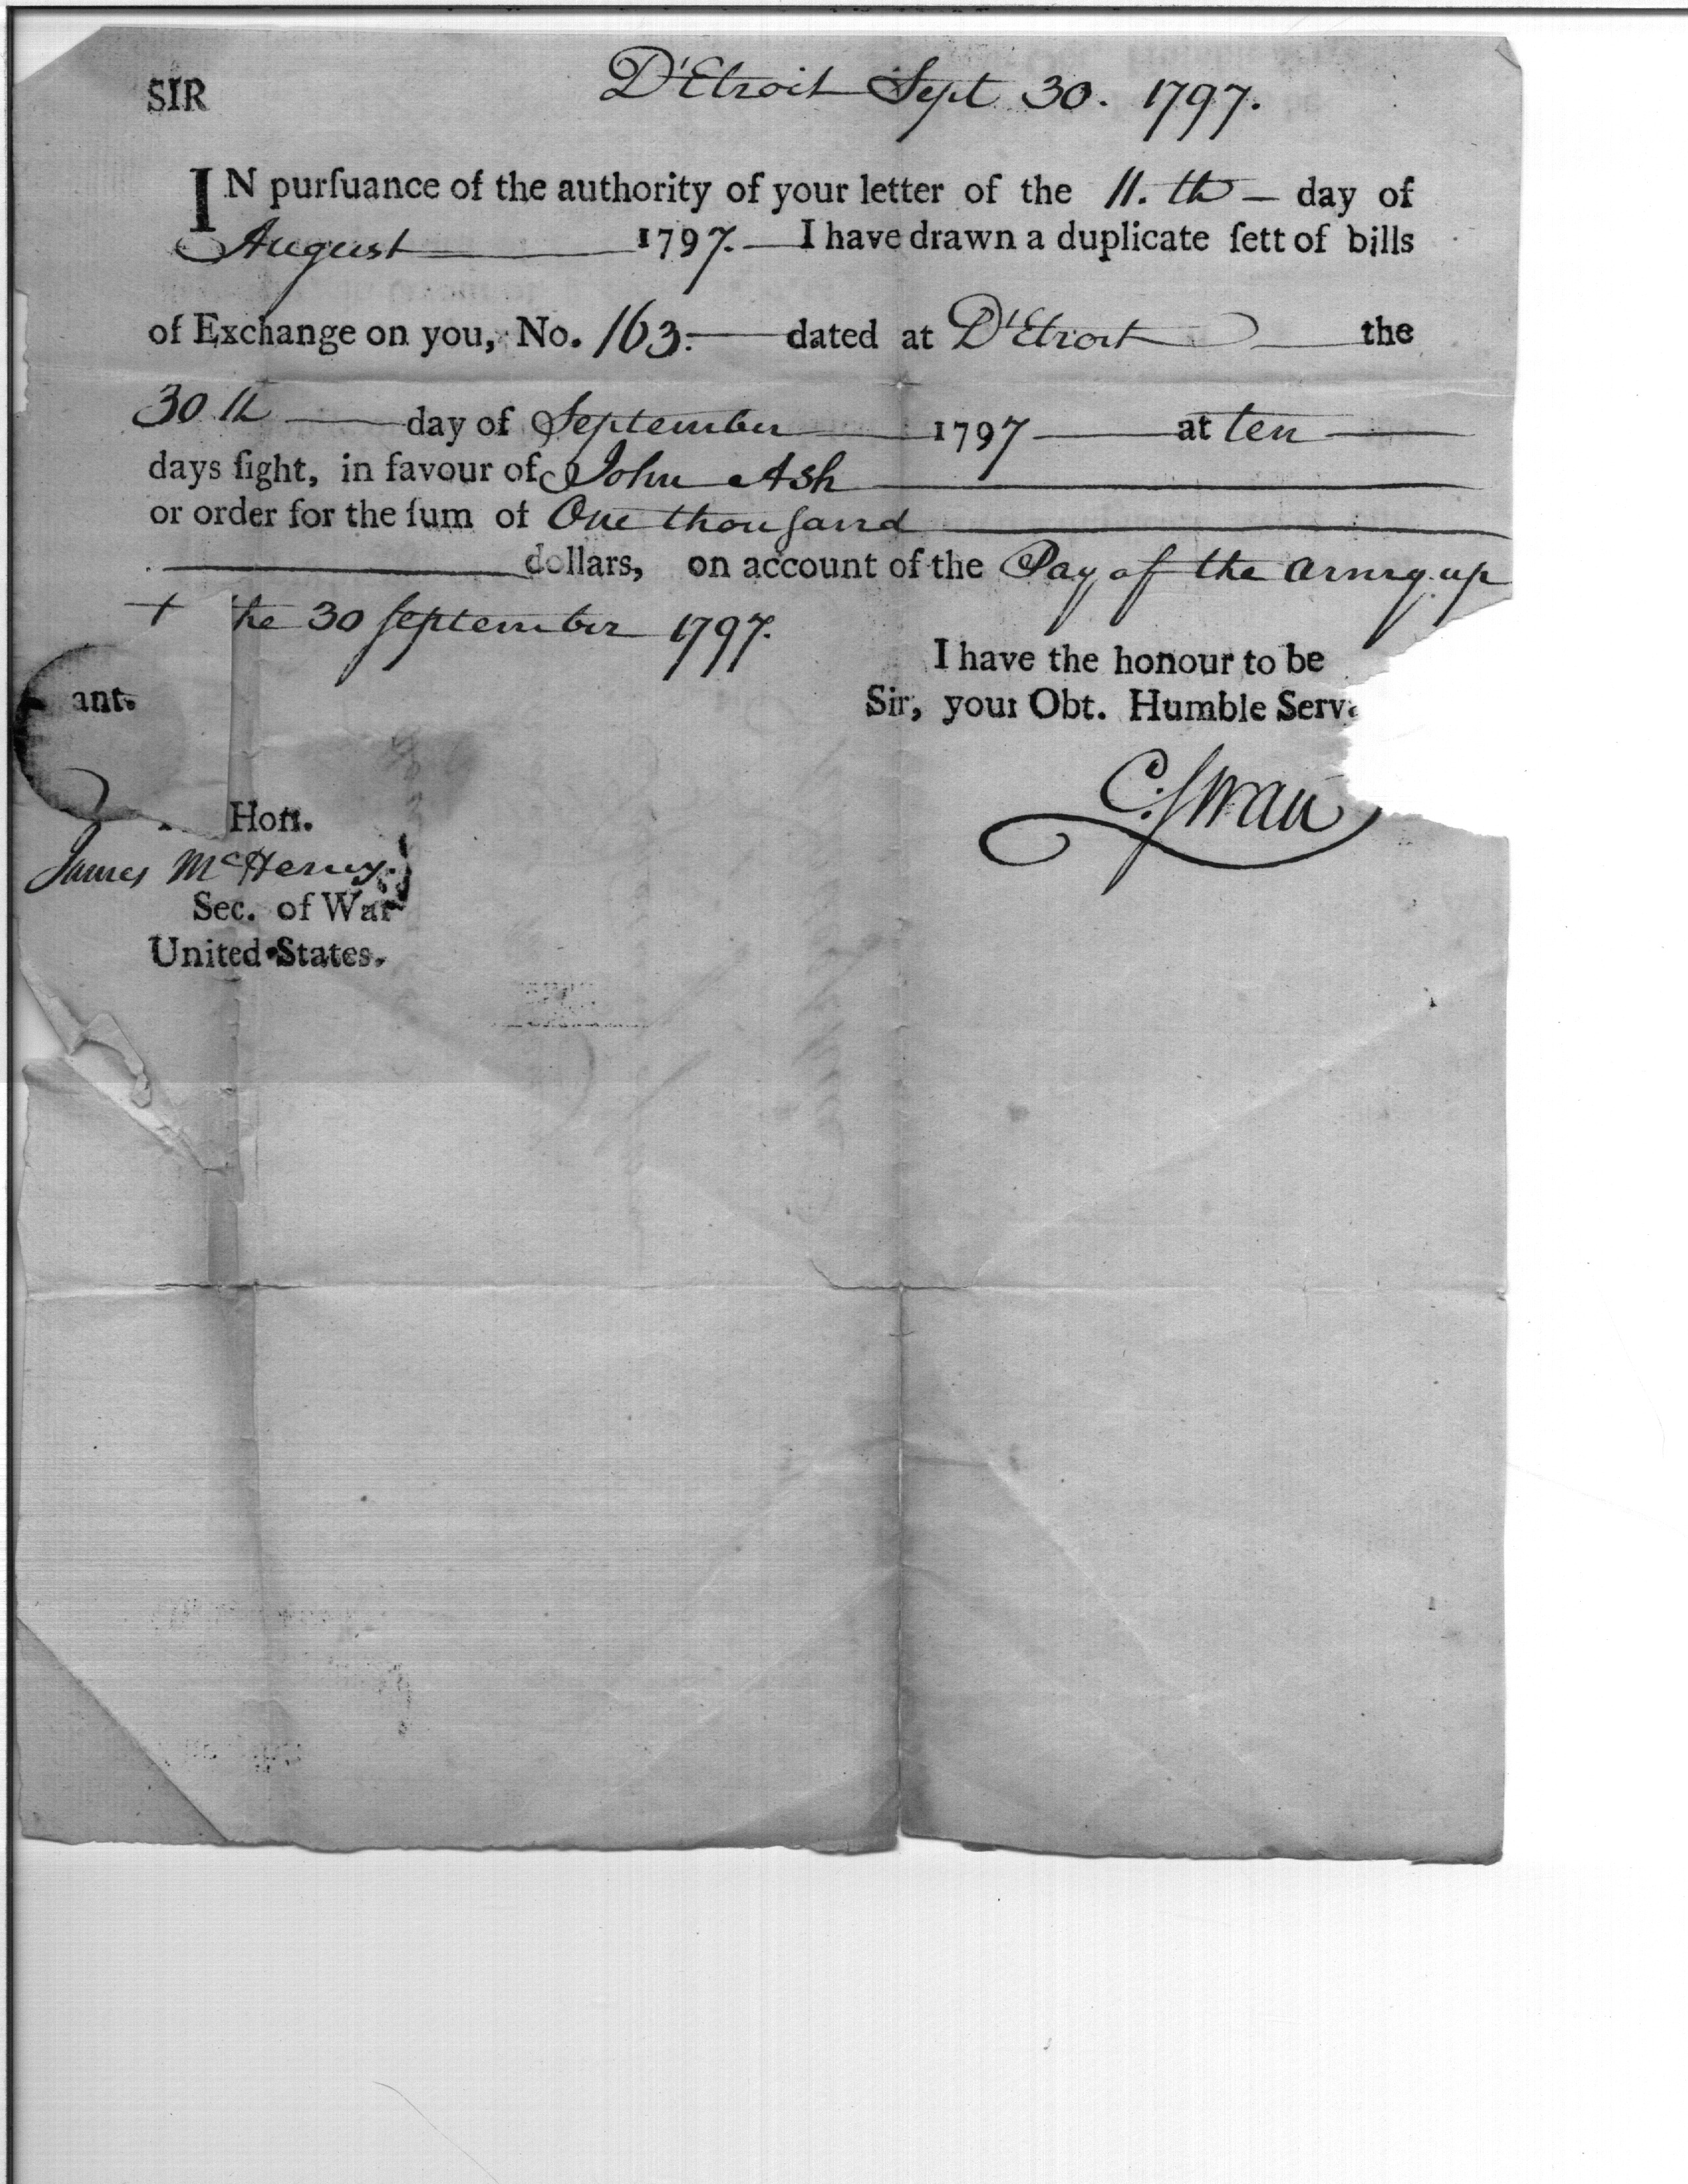 SIR D'Etroit Sept 30. 1797.
IN purſuance of the authority of your letter of the 11.th — day of
August 1797. — I have drawn a duplicate ſett of bills
of Exchange on you, No. 163. — dated at D'Etroit — the
30th — day of September — 1797 — at ten —
days ſight, in favour of John Ash
or order for the ſum of One thouſand
dollars, on account of the Pay of the army up
t he 30 September 1797.
I have the honour to be
Sir, your Obt. Humble Serva
ant.
C. Swan
Hon.
James McHenry
Sec. of War
United States.